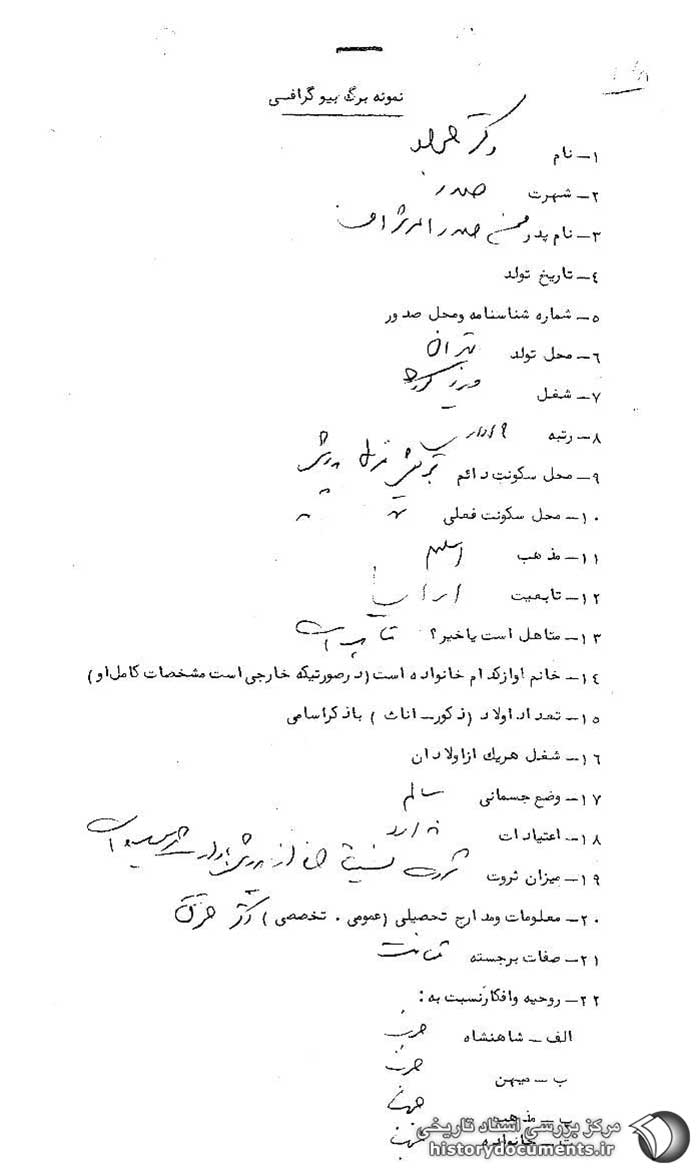 نمونه برگ بیوگرافی
۱- نام دکتر جواد
۲- شهرت صدر
۳- نام پدر محسن صدرالاشراف
۴- تاریخ تولد
۵- شماره شناسنامه ومحل صدور
۶- محل تولد تهران
۷- شغل وزیر کشور
۸- رتبه
۹- محل سکونت دائم تجریش منزل پدرش
۱۰- محل سکونت فعلی " "
۱۱- مذهب اسلام
۱۲- تابعیت ایران
۱۳- متاهل است یاخیر؟
۱۴- خانم اوازکدام خانواده است (درصورتیکه خارجی است مشخصات کامل او)
۱۵- تعداد اولاد (ذکور- اناث) باذکراسامی
۱۶- شغل هریک ازاولادان
۱۷- وضع جسمانی سالم
۱۸- اعتیادات ندارد
۱۹- میزان ثروت ثروت نسبتا از پدرش
۲۰- معلومات ومدارج تحصیلی (عمومی . تخصصی) دکتر حقوق
۲۱- صفات برجسته متانت
۲۲- روحیه وافکارنسبت به :
الف - شاهنشاه خوب
ب - میهن خوب
پ - مذهب
ت - خانواده
مرکز بررسی اسناد تاریخی
historydocuments.ir